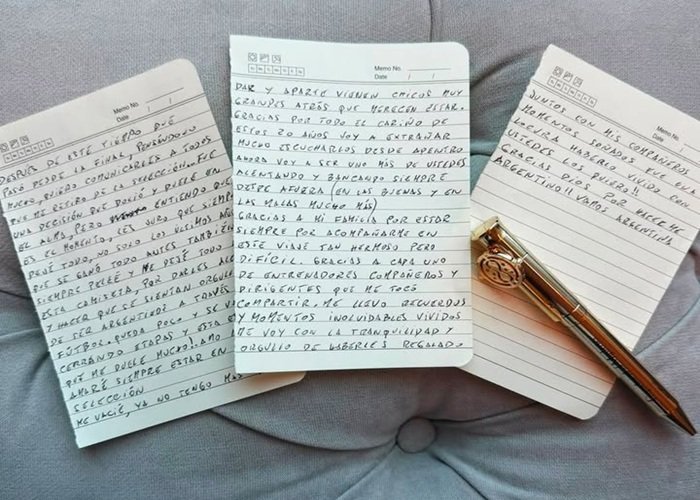 Memo No.
Date / /
DESPUES DE ESTE TIEMPO QUE
PASÓ DESDE LA FINAL, PENSANDOLO
MUCHO, QUIERO COMUNICARLES A TODOS
QUE ME RETIRO DE LA SELECCION. FUE
UNA DECISIÓN QUE DOLIÓ Y DUELE EN
EL ALMA, PERO ENTIENDO QUE
ES EL MOMENTO, LES JURO QUE SIEMPRE
DEJÉ TODO, NO SOLO LOS ULTIMOS AÑOS
QUE SE GANÓ TODO, ANTES TAMBIÉN
SIEMPRE PELEÉ Y ME DEJÉ TODO
ESTA CAMISETA, POR DARLES ALE
Y HACER QUE SE SIENTAN ORGULL
DE SER ARGENTINOS A TRAVÉS
FÚTBOL. QUEDA POCO Y SE
CERRANDO ETAPAS Y ESTA E
QUE ME DUELE MUCHO!. AMO
AMARÉ SIEMPRE ESTAR EN
SELECCIÓN
ME VACIÉ, YA NO TENGO MAS
Memo No.
Date / /
DAR Y APARTE VIENEN CHICOS MUY
GRANDES ATRÁS QUE MERECEN ESTAR.
GRACIAS POR TODO EL CARIÑO DE
ESTOS 20 AÑOS VOY A EXTRAÑAR
MUCHO ESCUCHARLOS DESDE ADENTRO
AHORA VOY A SER UNO MÁS DE USTEDES
ALENTANDO Y BANCANDO SIEMPRE
DESDE AFUERA (EN LAS BUENAS Y EN
LAS MALAS MUCHO MÁS)
GRACIAS A MI FAMILIA POR ESTAR
SIEMPRE POR ACOMPAÑARME EN
ESTE VIAJE TAN HERMOSO PERO
DIFÍCIL. GRACIAS A CADA UNO
DE ENTRENADORES COMPAÑEROS Y
DIRIGENTES QUE ME TOCÓ
COMPARTIR. ME LLEVO RECUERDOS
Y MOMENTOS INOLVIDABLES VIVIDOS
ME VOY CON LA TRANQUILIDAD Y
ORGULLO DE HABERLES REGALADO
Memo No.
Date / /
JUNTOS CON MIS COMPAÑEROS
MOMENTOS SOÑADOS FUE UNA
LOCURA HABERLO VIVIDO CON
USTEDES LOS QUIERO!!
GRACIAS DIOS POR HACERME
ARGENTINO!! VAMOS ARGENTINA